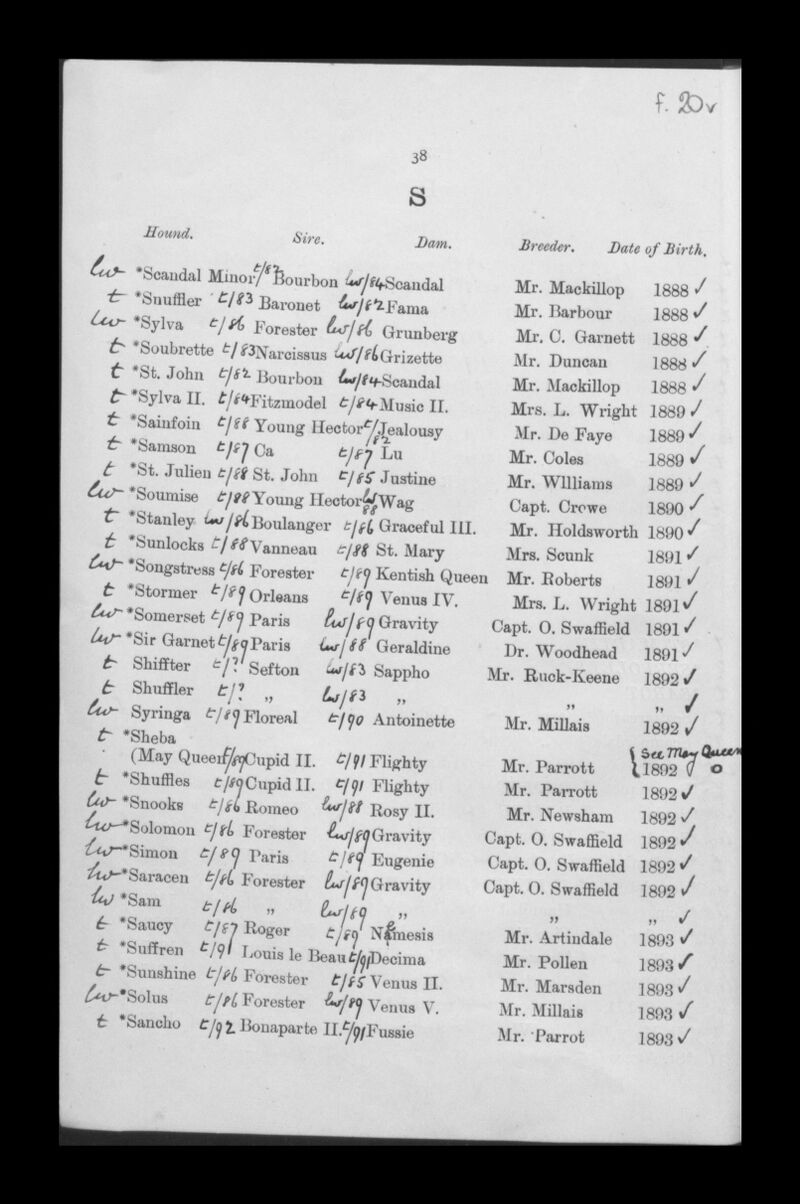 f. 20v
38
S
Hound. Sire. Dam. Breeder. Date of Birth.
lw *Scandal Minor t/82 Bourbon lw/84 Scandal Mr. Mackillop 1888 ✓
t *Snuffler t/83 Baronet lw/82 Fama Mr. Barbour 1888 ✓
lw *Sylva t/86 Forester lw/86 Grunberg Mr. C. Garnett 1888 ✓
t *Soubrette t/83 Narcissus lw/86 Grizette Mr. Duncan 1888 ✓
t *St. John t/82 Bourbon lw/84 Scandal Mr. Mackillop 1888 ✓
t *Sylva II. t/84 Fitzmodel t/84 Music II. Mrs. L. Wright 1889 ✓
t *Sainfoin t/88 Young Hector t/82 Jealousy Mr. De Faye 1889 ✓
t *Samson t/87 Ca t/87 Lu Mr. Coles 1889 ✓
t *St. Julien t/88 St. John t/85 Justine Mr. WIlliams 1889 ✓
lw *Soumise t/88 Young Hector lw/88 Wag Capt. Crowe 1890 ✓
t *Stanley lw/86 Boulanger t/86 Graceful III. Mr. Holdsworth 1890 ✓
t *Sunlocks t/88 Vanneau t/88 St. Mary Mrs. Scunk 1891 ✓
lw *Songstress t/86 Forester t/89 Kentish Queen Mr. Roberts 1891 ✓
t *Stormer t/89 Orleans t/89 Venus IV. Mrs. L. Wright 1891 ✓
lw *Somerset t/89 Paris lw/89 Gravity Capt. O. Swaffield 1891 ✓
lw *Sir Garnet t/89 Paris lw/88 Geraldine Dr. Woodhead 1891 ✓
t Shiffter t/? Sefton lw/83 Sappho Mr. Ruck-Keene 1892 ✓
t Shuffler t/? „ lw/83 „ „ „ ✓
lw Syringa t/89 Floreal t/90 Antoinette Mr. Millais 1892 ✓
t *Sheba { See May Queen
(May Queen t/89 Cupid II. t/91 Flighty Mr. Parrott 1892 ✓ o
t *Shuffles t/89 Cupid II. t/91 Flighty Mr. Parrott 1892 ✓
lw *Snooks t/86 Romeo lw/88 Rosy II. Mr. Newsham 1892 ✓
lw *Solomon t/86 Forester lw/89 Gravity Capt. O. Swaffield 1892 ✓
lw *Simon t/89 Paris t/89 Eugenie Capt. O. Swaffield 1892 ✓
lw *Saracen t/86 Forester lw/89 Gravity Capt. O. Swaffield 1892 ✓
lw *Sam t/86 „ lw/89 „ „ „ ✓
t *Saucy t/87 Roger t/89 Nemesis Mr. Artindale 1893 ✓
t *Suffren t/91 Louis le Beau t/91 Decima Mr. Pollen 1893 ✓
t *Sunshine t/86 Forester t/85 Venus II. Mr. Marsden 1893 ✓
lw *Solus t/86 Forester lw/89 Venus V. Mr. Millais 1893 ✓
t *Sancho t/92 Bonaparte II. t/91 Fussie Mr. Parrot 1893 ✓